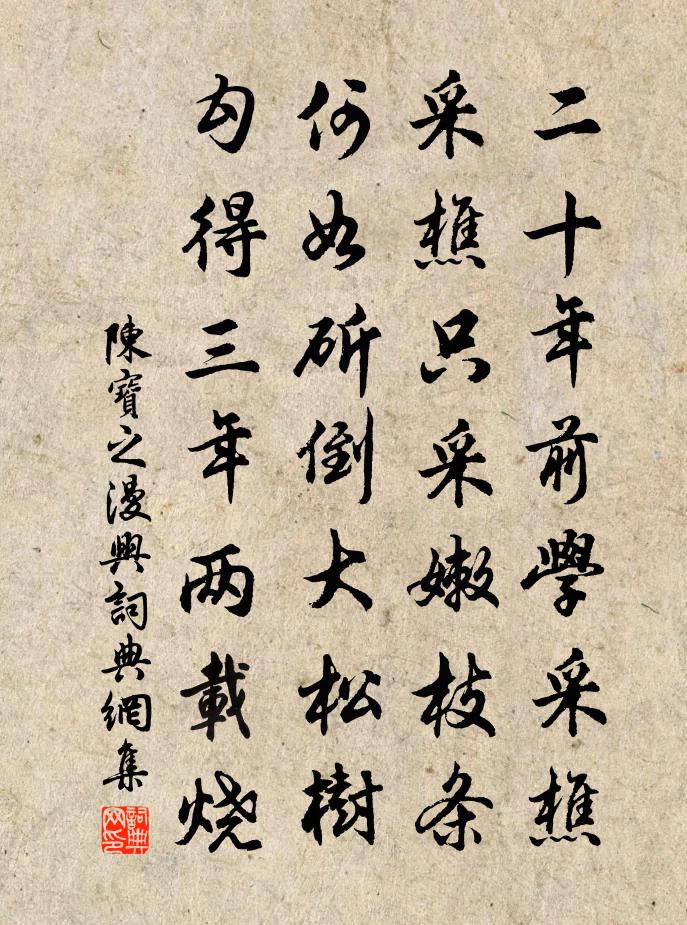 二十年前學采樵
采樵只采嫩枝条
何如斫倒大松樹
勾得三年两載烧
陳寶之漫興詞典網集
詞典网印